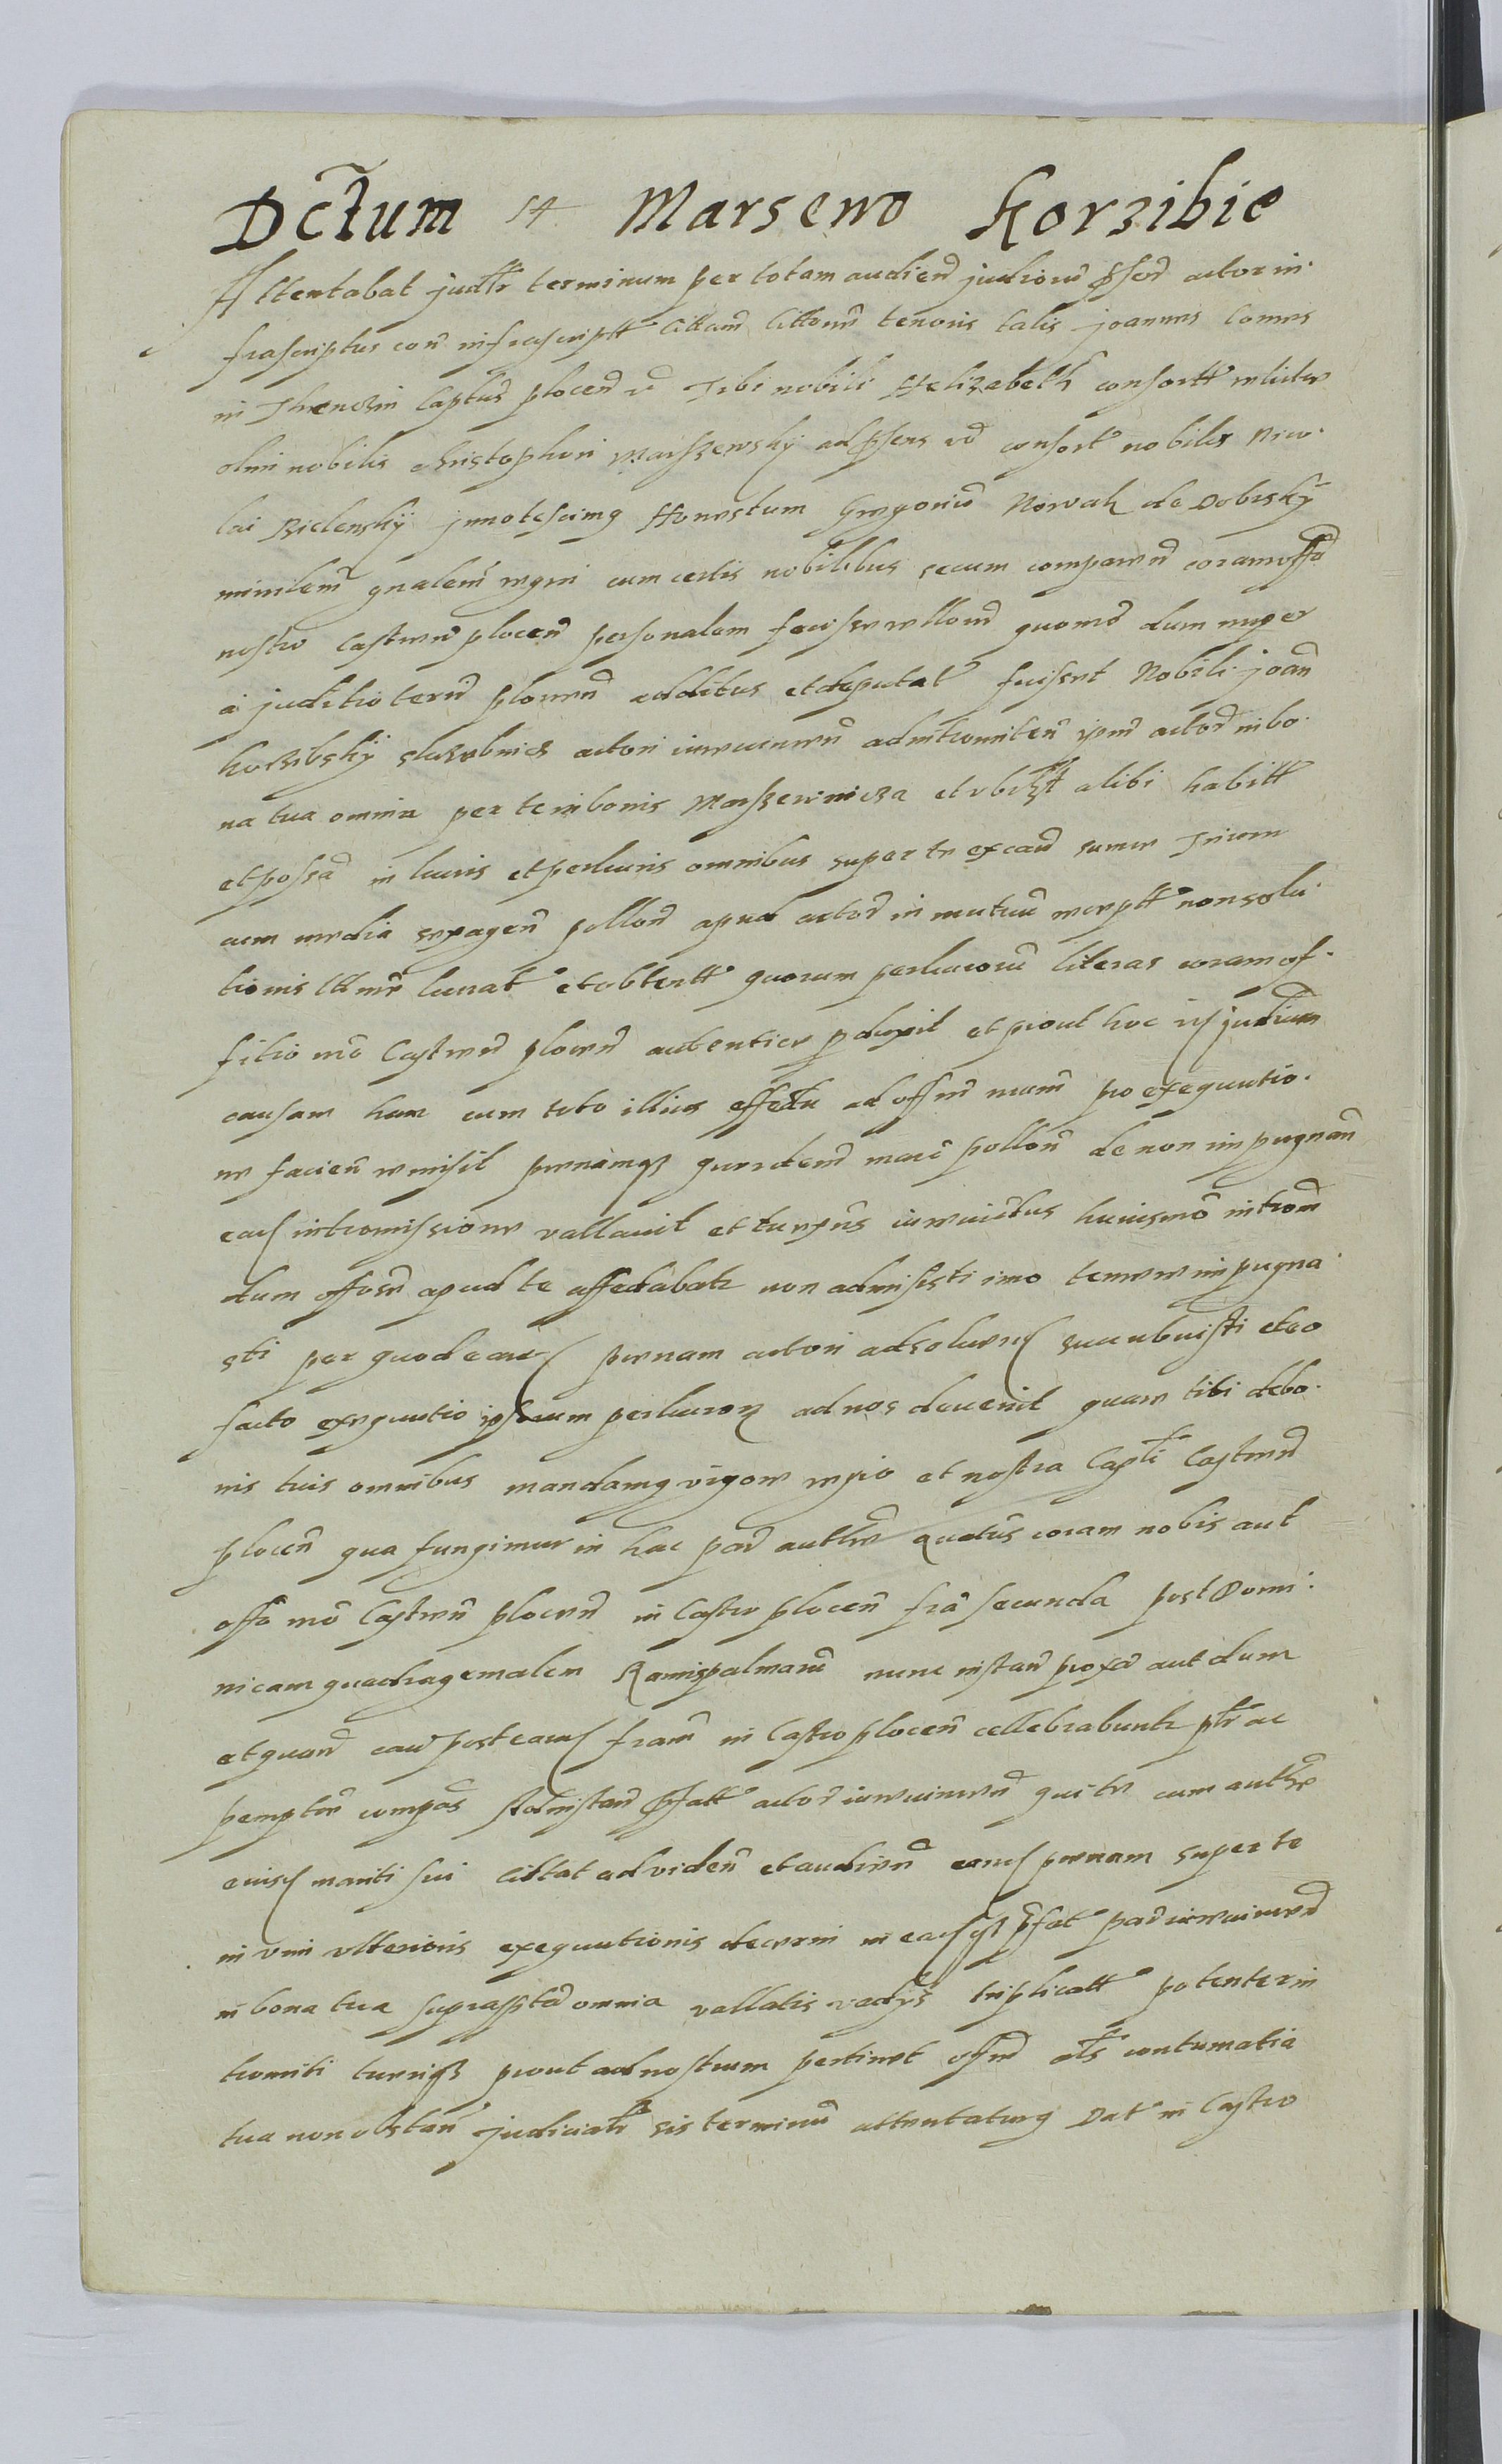 Dctum 14 Marsewo Korzibie
Attentabat judtr terminum per totam audiend judioru psend actor in.
frascriptus con infrascriptt littam littoru tenoris talis joannes Comes
in Thenczin Captus plocen Tibi nobili Helizabeth consortt relicte
olim nobilis christophori Marszewsky ad psens vo consort nobilis Nico.
lai Bielensky jnnotescimg Honestum Gregoriu Nowak de Dobrsky
minlem gnalem regni cum certis nobilibus secum comparen coram offo
nostro Castren plocen personalem fecisse rellom quomo dum nuper
a juditio tern plocen additus et deputat fuisset Nobili joan
Korzibsky sluzebnicz actori in ad intromiten ipm actor in bo.
na tua omnia per te in bonis Marszewnicza et vbilzt alibi habitt
et possa in lucris et perlucris omnibus super te ex caus summe Trium
cum media sexagen pollon apud actor in mutuu receptt non solu.
tionis lucrat et obtentt quorum perlucroru literas coram of.
fitio nro Castren plocen autentice pduxit et prout hoc judicium
causam hanc cum toto illius effectu ad offm nrum pro exequutio.
ne facien remisit penamqz quendem marc pollon de non impugnan
eaq intromissione vallauit et tu huiusmo introm
dum offose apud te affectabatr non admisisti imo temere impugna.
sti per quod eanq penam actori adsoluen succubuisti et eo
facto exequutio ipsarum perlucroru ad nos deuenit quare tibi de bo.
nis tuis omnibus mandamg vigore regio et nostra Captli Castren
plocen qua fungimur in hac par authte quatus coram nobis aut
offo nro Castren plocen in Castro plocen fra secunda post Domi.
nicam quadragemalem Ramispalmaru nunc instan proxa aut dum
et quand cau post eanq fram in Castro plocen cellebrabuntr ptr ac
pempto compas Ad instan pfatt actor qui te cum authte
eiusq mariti sui cittat ad viden et audien eanq penam super te
in vim vlterioris exequutionis decerni in easqz pfat par
in bona tua suprasptа omnia vallatis vadys triplicatt potenter in
tromiti turriqz prout ad nostrum pertinet offm contumatia
tua non obstan Judiciatr sis terminu attentaturg Dat in Castro